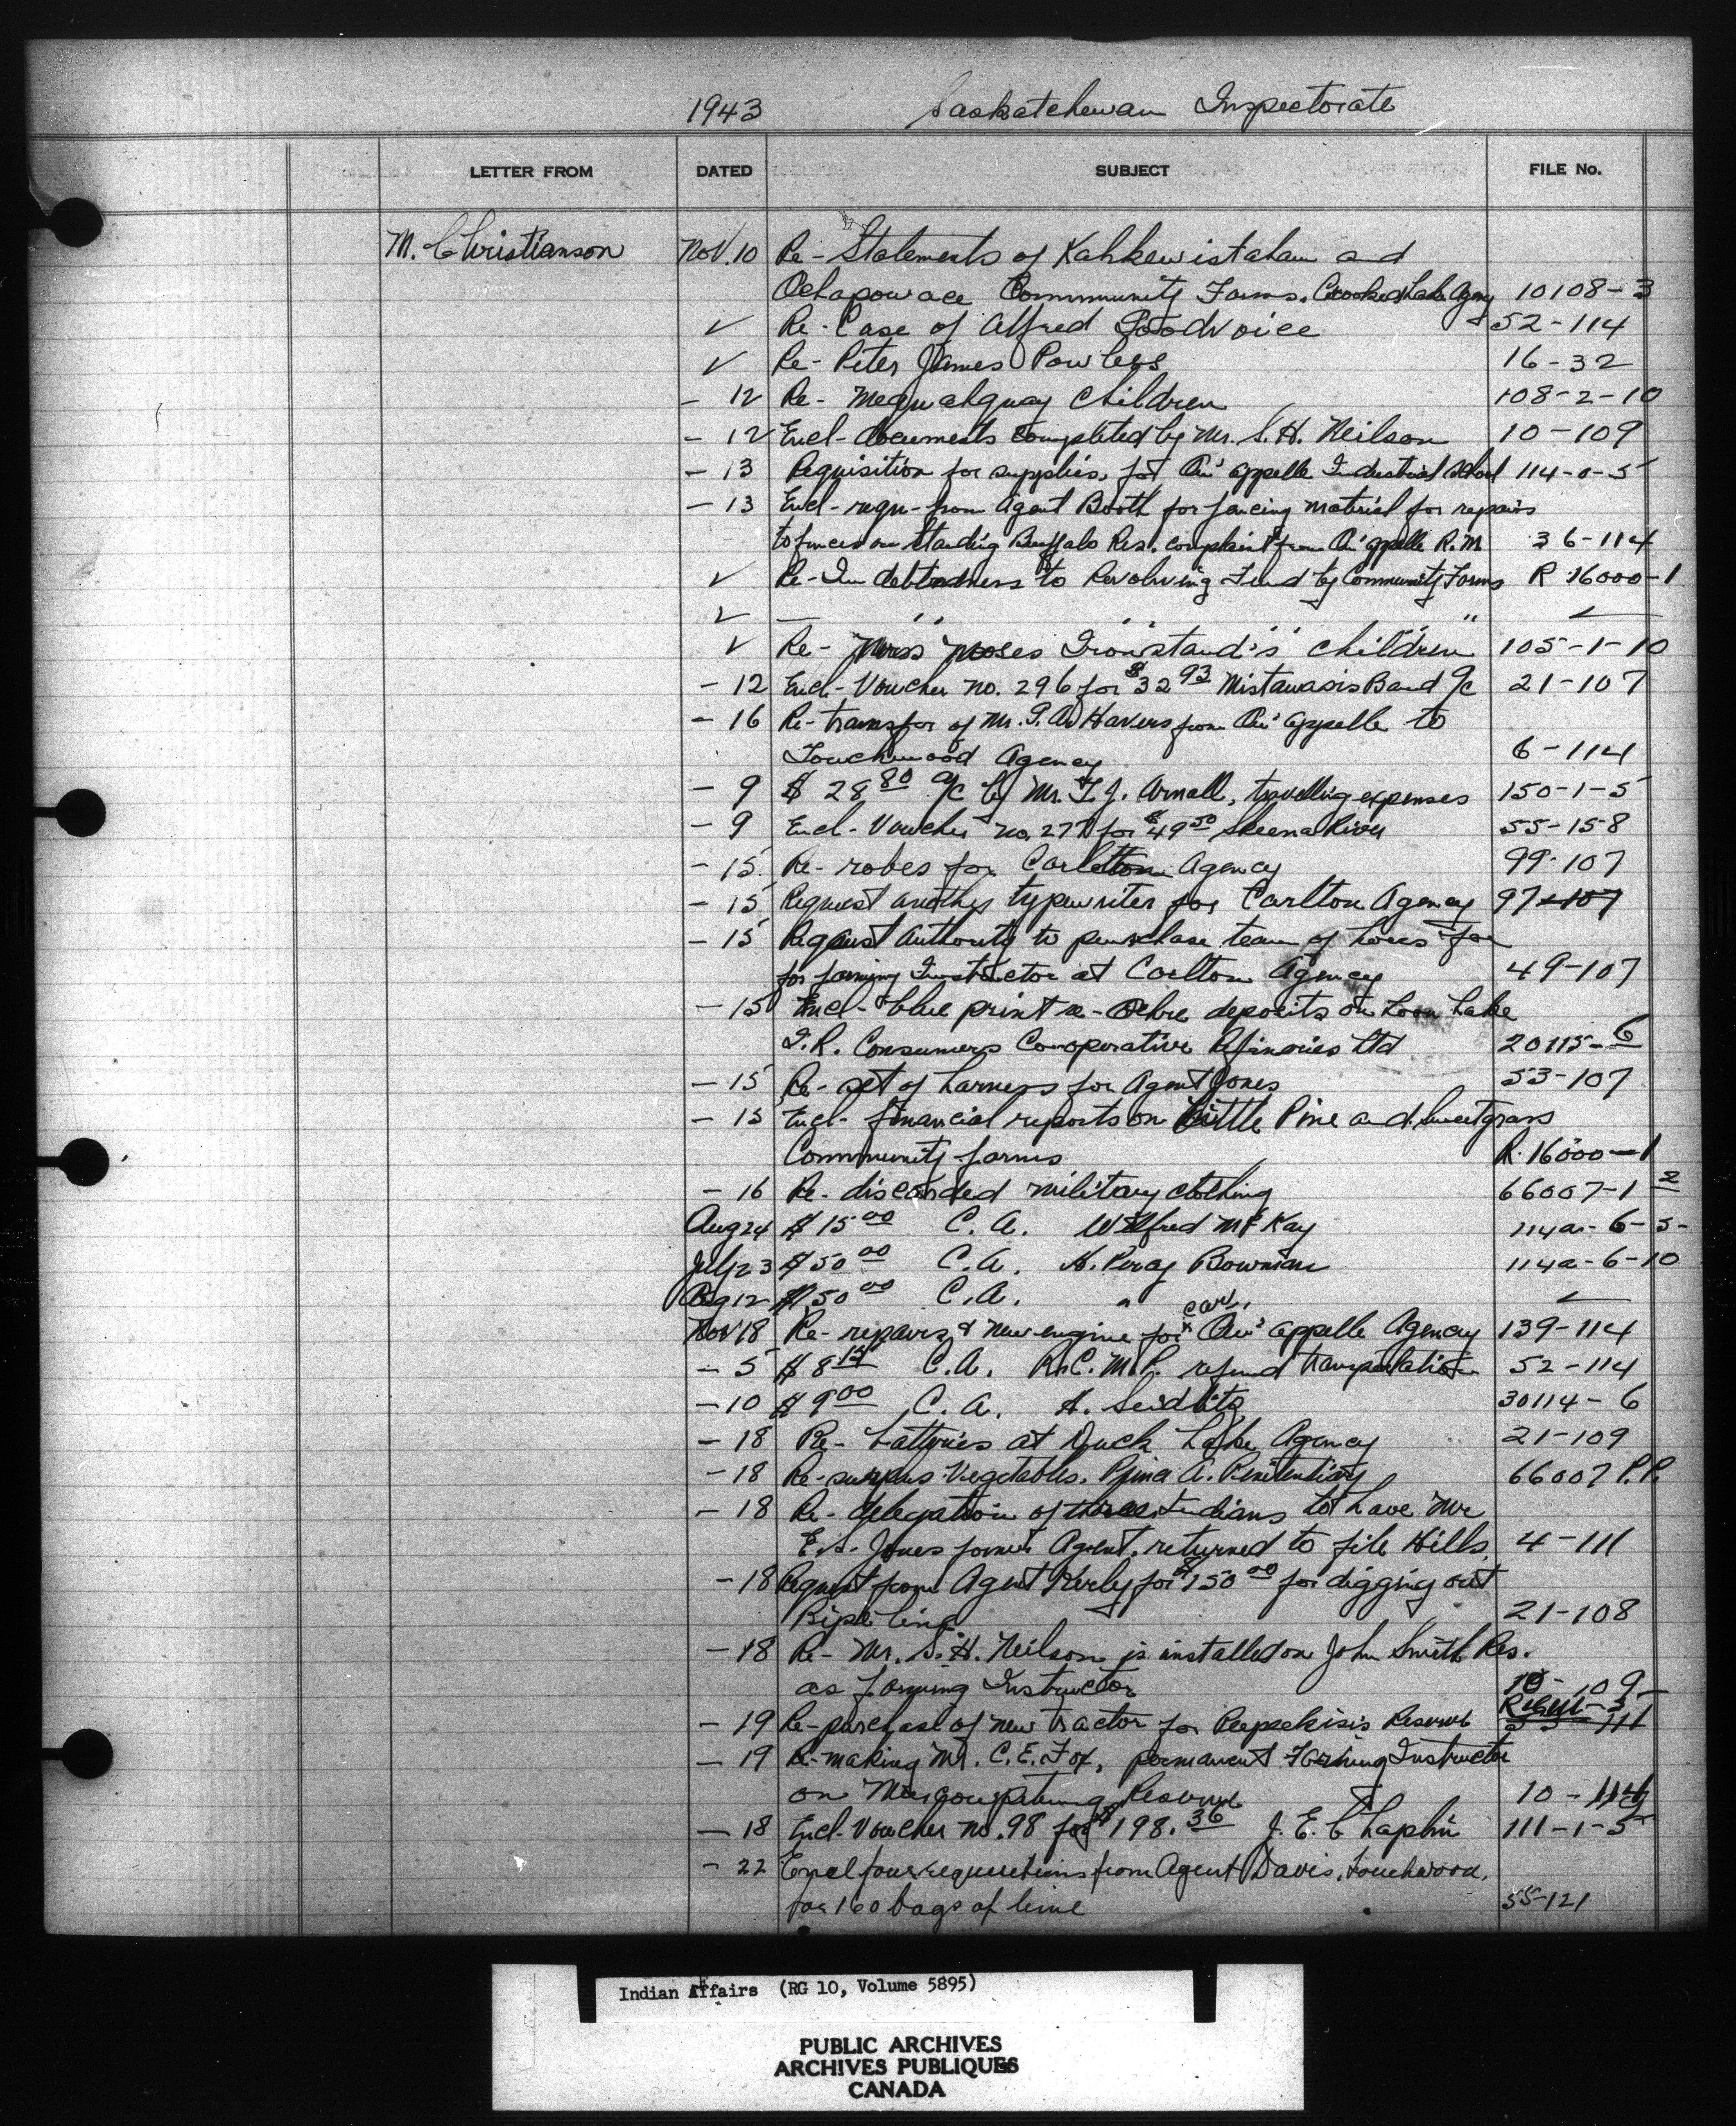 1943 Saskatchewan Inspectorate
LETTER FROM DATED SUBJECT FILE No.
M. Christianson Nov. 10 Re - Statements of Kahkewistahaw and
Ochapowace Community Farms, Crooked Lake Agency 10108-3
✓ Re - Case of Alfred Goodvoice 52-114
✓ Re - Peter James Powless 16-32
- 12 Re - Mequahquay Children 108-2-10
- 12 Encl - documents completed by Mr. S. H. Neilson 10-109
- 13 Requisition for supplies, for Qu'appelle Industrial School 114-0-5
- 13 Encl - requ - from Agent Booth for fencing material for repairs
to fences on Standing Buffalo Res. complaint from Qu'appelle R.M. 36-114
✓ Re - Indebtedness to Revolving Fund by Community Farms R 16000-1
✓ — " " "
✓ Re - Moses Ironstand's children 105-1-10
- 12 Encl - Voucher no. 296 for $32 93 Mistawasis Band a/c 21-107
- 16 Re - transfer of Mr. Havers from Qu'appelle to
Touchwood Agency 6-114
- 9 $ 28 80 a/c by Mr. Arnall, travelling expenses 150-1-5
- 9 Encl - Voucher no. 277 for $49 50 Skeena River 55-158
- 15 Re - robes for Carlton Agency 99-107
- 15 Request another typewriter for Carlton Agency 97-107
- 15 Request Authority to purchase team of horses for
for farming Instructor at Carlton Agency 49-107
- 15 Encl - blue print re - Ochre deposits on Loon Lake
I.R. Consumers Cooperative Refineries Ltd 20115-6
- 15 Re - set of harness for Agent Jones 53-107
- 15 Encl - financial reports on Little Pine and Sweetgrass
Community farms R. 16000-1
- 16 Re - discarded military clothing 66007-1 2
Aug 24 $ 15 00 C. A. Wilfred McKay 114a-6-5-
July 23 $ 50 00 C. A. H. Percy Bowman 114a-6-10
Aug 12 $ 50 00 C. A. "
Nov 18 Re - repairs & new engine for car, Qu'appelle Agency 139-114
- 5 $ 8 C. A. R.C.M.P. refund transportation 52-114
- 10 $ 9 00 C. A. H. Seidlitz 30114-6
- 18 Re - batteries at Duck Lake Agency 21-109
- 18 Re - surplus Vegetables. Prince A. Penitentiary 66007 P.P.
- 18 Re - delegation of three Indians to have Mr
E. S. Jones former Agent, returned to File Hills. 4-111
- 18 Request from Agent for $150 00 for digging out
Pipe line 21-108
- 18 Re - Mr. S. H. Neilson is installed on John Smith Res.
as farming Instructor 10-109
- 19 Re - purchase of new tractor for Peepeekisis Reserve 111
- 19 Re - making Mr. C. E. Fox, permanent Farming Instructor
on Muscowpetung Reserve 10-114
- 18 Encl - Voucher no. 98 for $198.36 J. E. Chaplin 111-1-5
- 22 Encl four requisitions from Agent Davis, Touchwood,
for 160 bags of lime 55-121
Indian Affairs (RG 10, Volume 5895)
PUBLIC ARCHIVES
ARCHIVES PUBLIQUES
CANADA